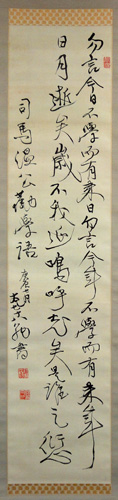 勿言今日不學而有来日勿言今年不學而有来年
日月逝矣歳不我延嗚呼老矣是誰之愆
司馬温公勸學語